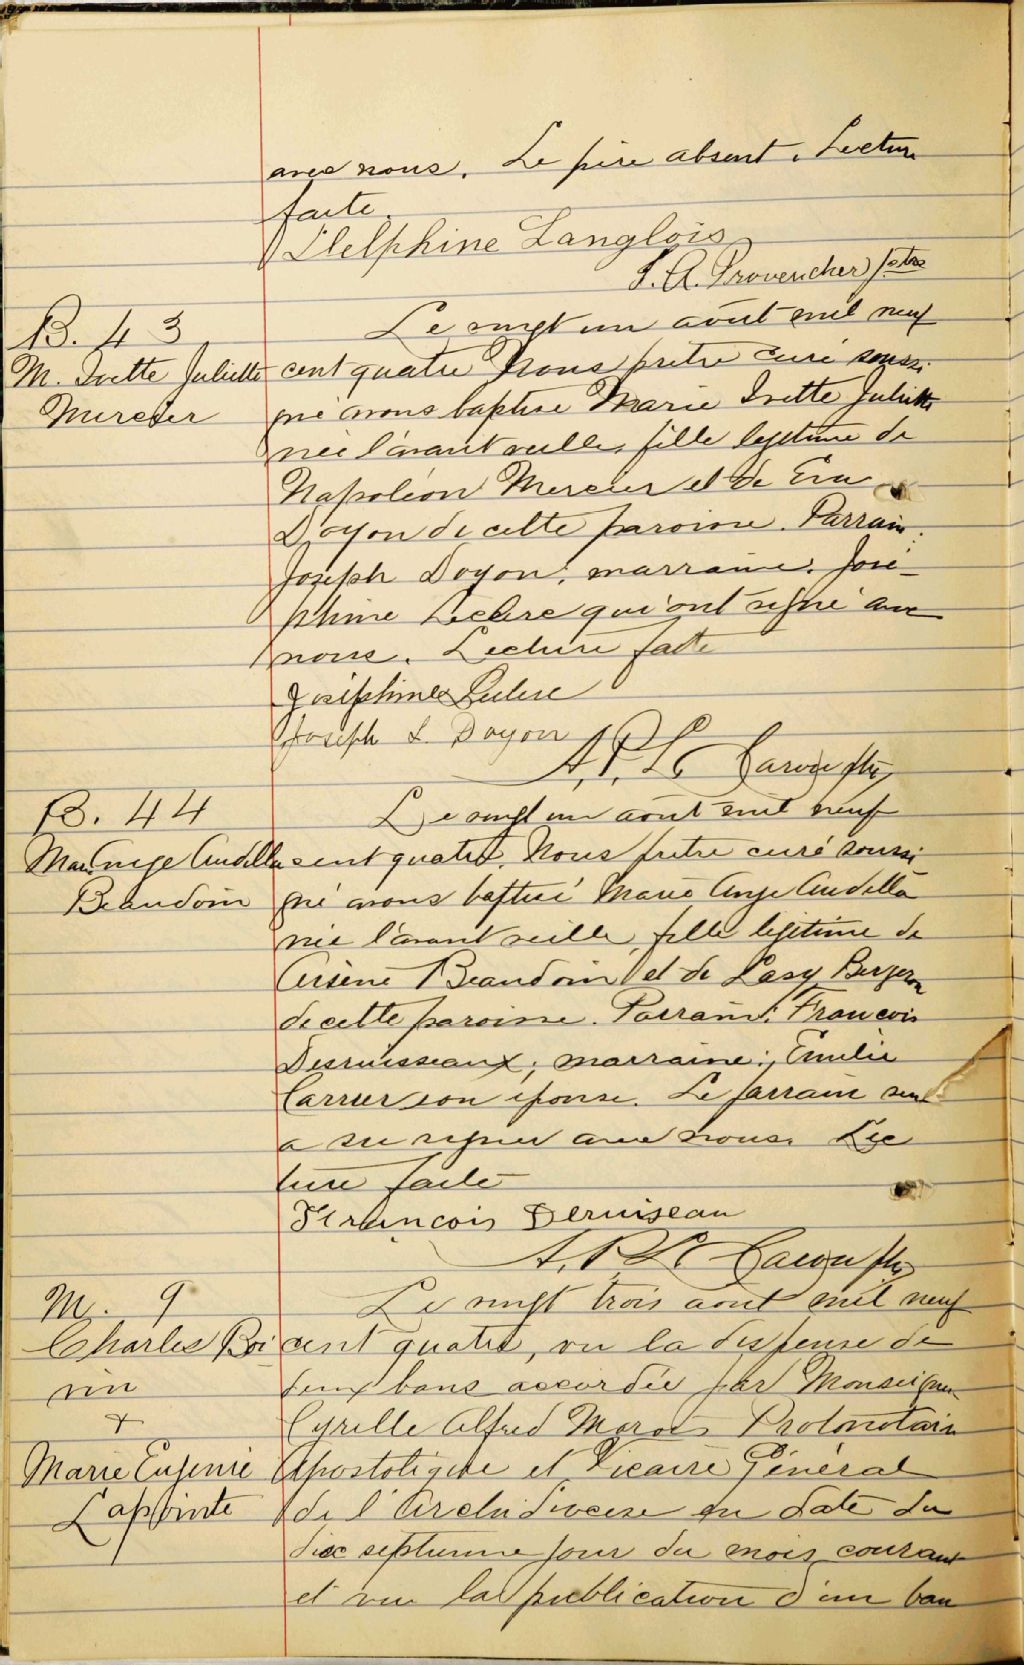 avec nous. Le père absent. Lecture
faite.
Delphine Langlois
J. A. Provencher ptre
B. 43
M. Ivette Juliette
Mercier
Le vingt un août mil neuf
cent quatre Nous prêtre curé soussi
gné avons baptisé Marie Ivette Juliette
née l'avant veille, fille légitime de
Napoléon Mercier et de Eva
Doyon de cette paroisse. Parrain:
Joseph Doyon; marraine: José-
phine Leclerc qui ont signé avec
nous. Lecture faite
Joséphine Leclerc
Joseph L. Doyon
A. P. Le Caron ptre
B. 44
Mar. Ange Audella
Beaudoin
Le vingt un août mil neuf
cent quatre. Nous prêtre curé soussi
gné avons baptisé Marie Ange Audella
née l'avant veille, fille légitime de
Arsène Beaudoin et de Lasy Bergeron
de cette paroisse. Parrain: Francois
Desruisseaux; marraine: Emilie
Carrier son épouse. Le parrain seul
a su signer avec nous. Lec
ture faite
François Deruiseau
A. P. Le Caron ptre
M. 9
Charles Boi
vin
+
Marie Eugenie
Lapointe
Le vingt trois août mil neuf
cent quatre, vu la dispense de
deux bans accordée par Monseigneur
Cyrille Alfred Marois Protonotaire
Apostolique et Vicaire Général
de l'Archidiocèse en date du
dix septième jour du mois courant
et vu la publication d'un ban